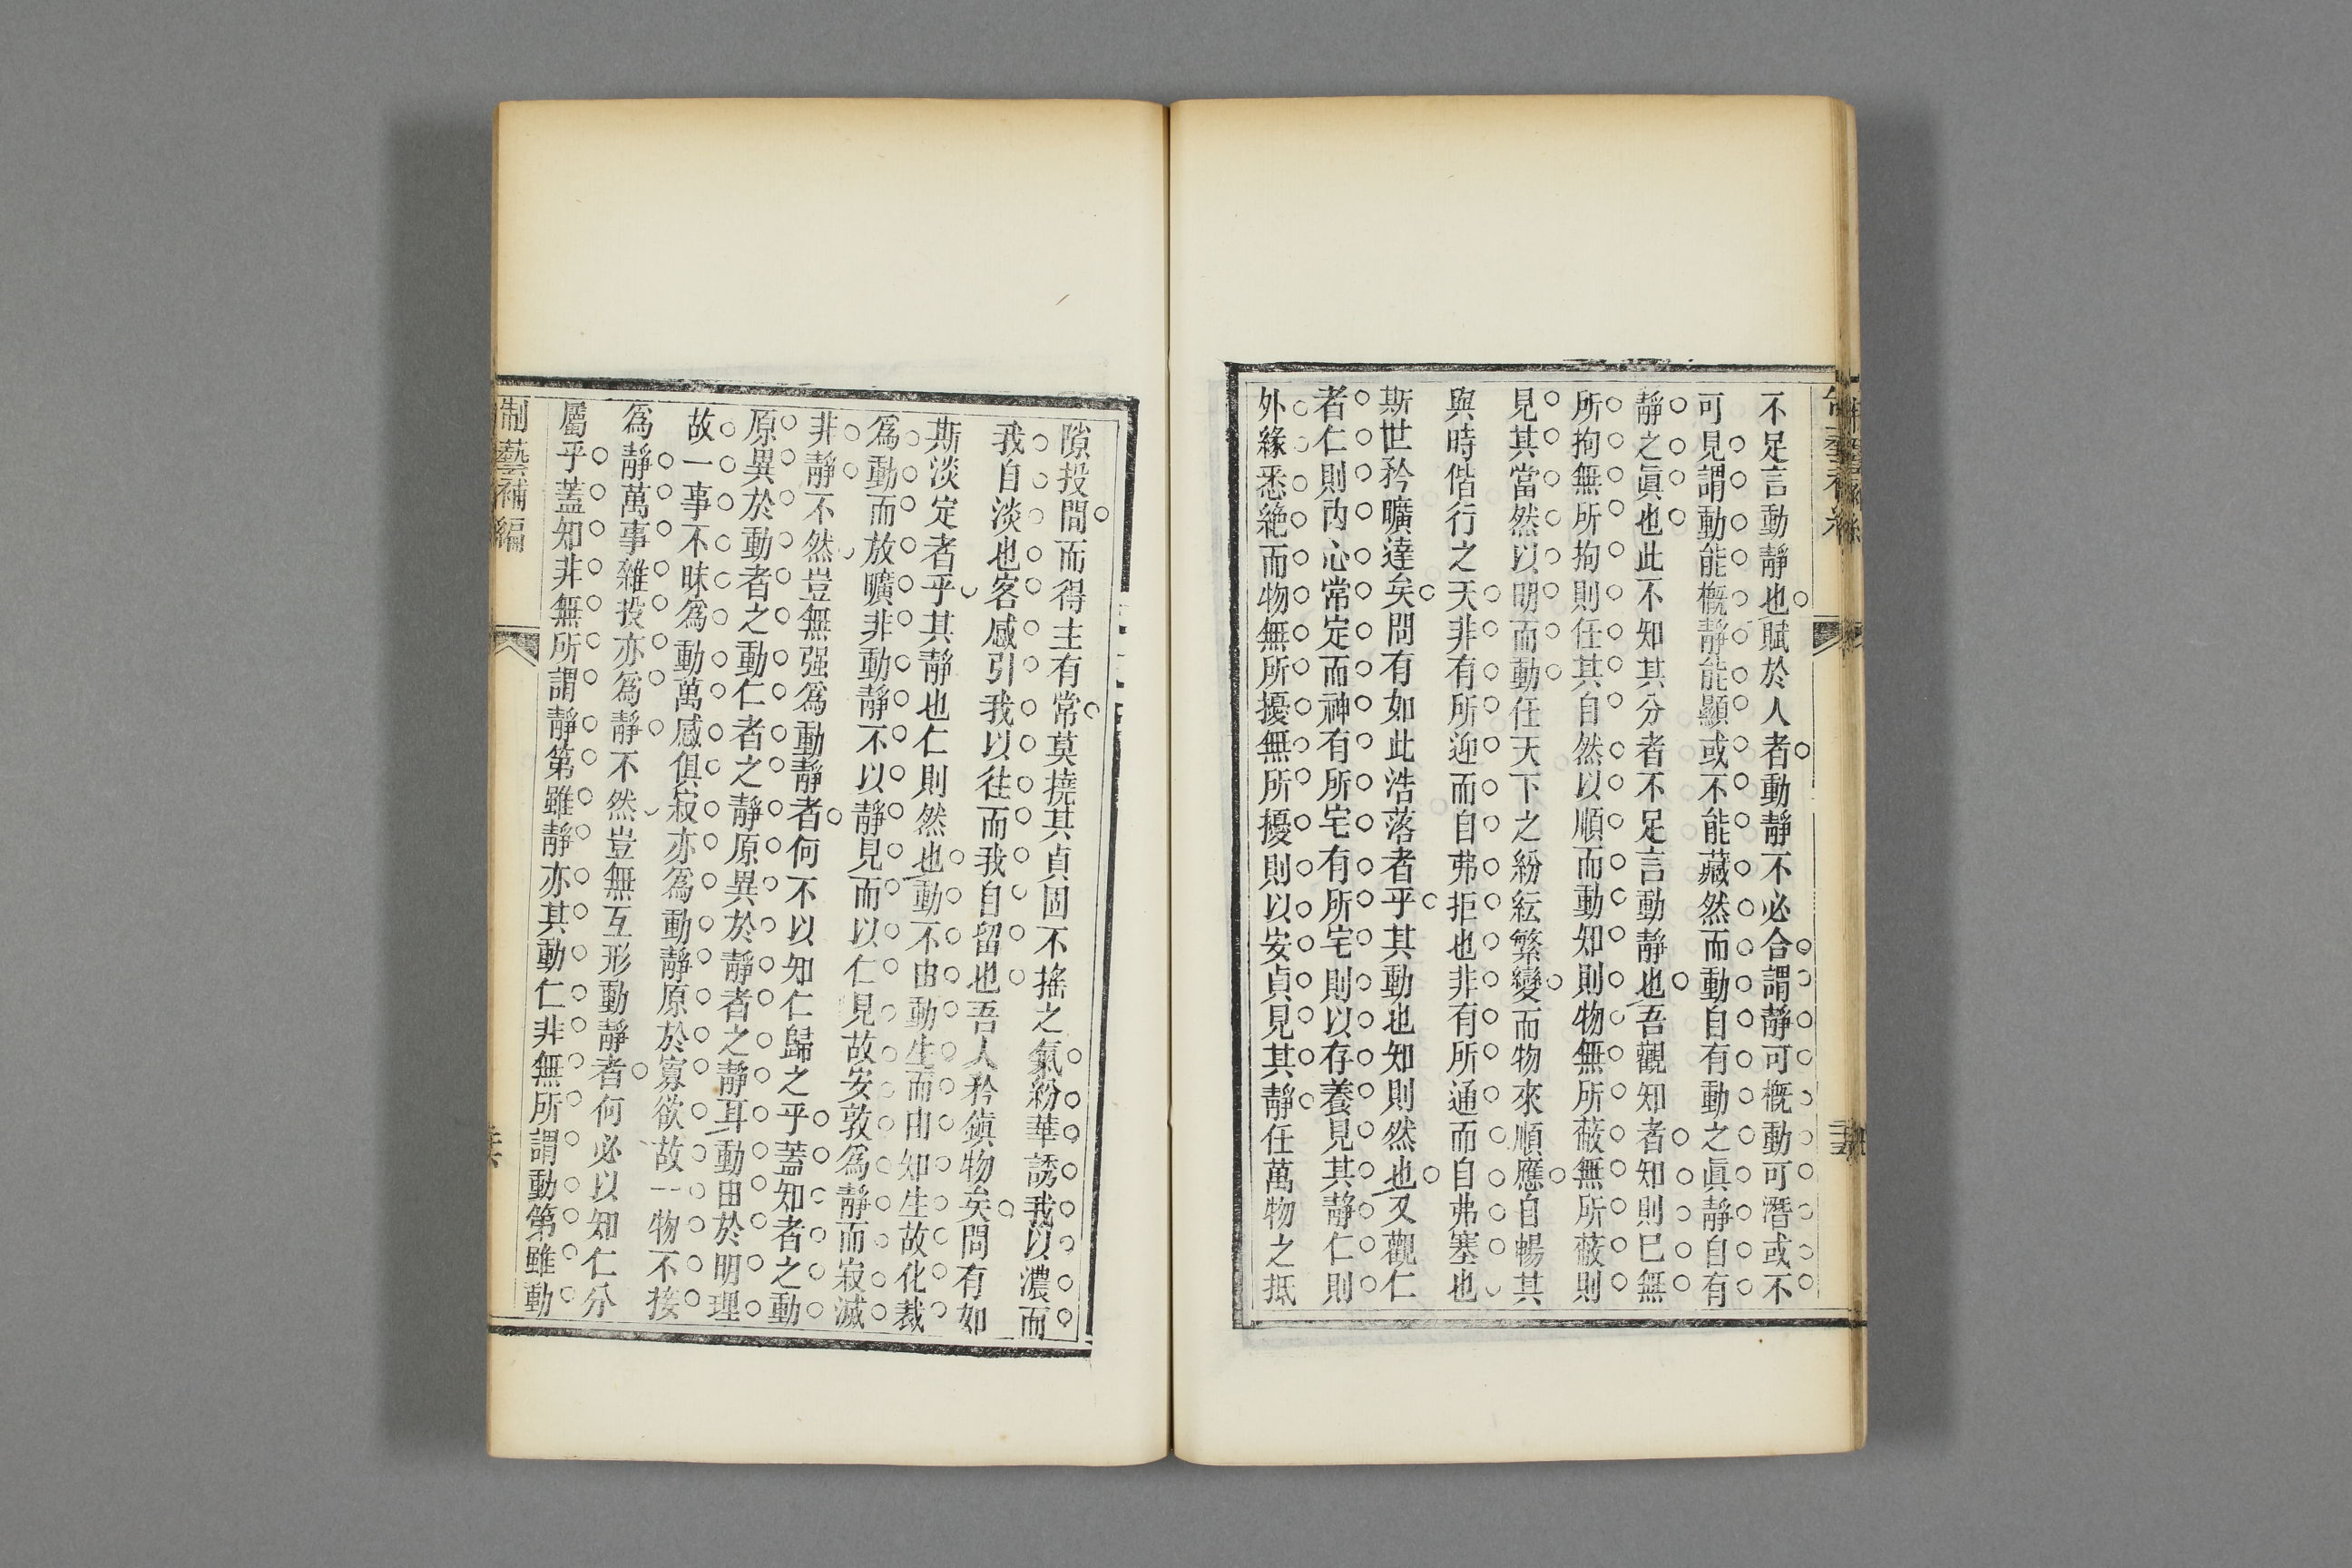 不足言動靜也賦於人者動靜不必合謂靜可概動可潛或不
可見謂動能概靜能顯或不能藏然而動自有動之眞靜自有
靜之眞也此不知其分者不足言動靜也吾觀知者知則已無
所拘無所拘則任其自然以順而動知則物無所蔽無所蔽則
見其當然以明而動任天下之紛紜繁變而物來順應自暢其
與時偕行之天非有所迎而自弗拒也非有所通而自弗塞也
斯世矜曠達矣問有如此浩落者乎其動也知則然也又觀仁
者仁則內心常定而神有所宅有所宅則以存養見其靜仁則
外緣悉絶而物無所擾無所擾則以安貞見其靜任萬物之抵
隙投間而得主有常莫撓其貞固不搖之氣紛華誘我以濃而
我自淡也客感引我以往而我自留也吾人矜鎭物矣問有如
斯淡定者乎其靜也仁則然也動不由動生而由知生故化裁
爲動而放曠非動靜不以靜見而以仁見故安敦爲靜而寂滅
非靜不然豈無强爲動靜者何不以知仁歸之乎蓋知者之動
原異於動者之動仁者之靜原異於靜者之靜耳動由於明理
故一事不昧爲動萬感俱寂亦爲動靜原於寡欲故一物不接
爲靜萬事雜投亦爲靜不然豈無互形動靜者何必以知仁分
屬乎蓋知非無所謂靜第雖靜亦其動仁非無所謂動第雖動
制藝補編